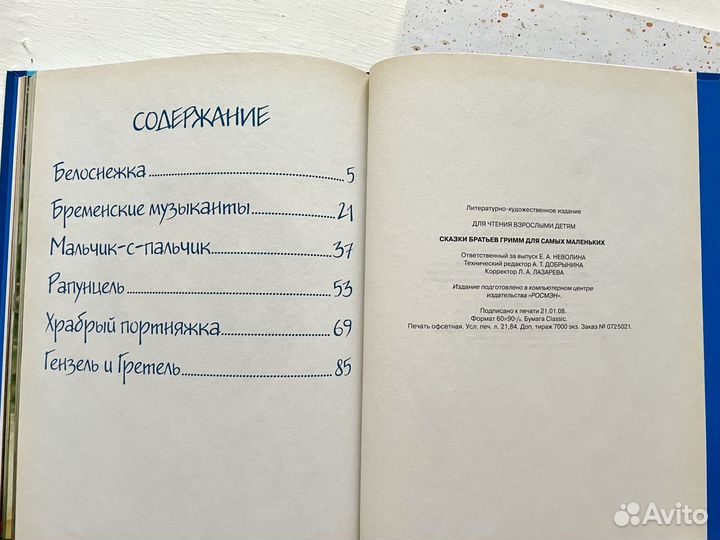 СОДЕРЖАНИЕ
Белоснежка 5
Бременские музыканты 21
Мальчик-с-пальчик 37
Рапунцель 53
Храбрый портняжка 69
Гензель и Гретель 85
Литературно-художественное издание
ДЛЯ ЧТЕНИЯ ВЗРОСЛЫМИ ДЕТЯМ
СКАЗКИ БРАТЬЕВ ГРИММ ДЛЯ САМЫХ МАЛЕНЬКИХ
Ответственный за выпуск Е. А. НЕВОЛИНА
Технический редактор А. Т. ДОБРЫНИНА
Корректор Л. А. ЛАЗАРЕВА
Издание подготовлено в компьютерном центре
издательства «РОСМЭН».
Подписано к печати 21.01.08.
Формат 60×90 ¹/₈. Бумага Classic.
Печать офсетная. Усл. печ. л. 21,84. Доп. тираж 7000 экз. Заказ № 0725021.
Avito